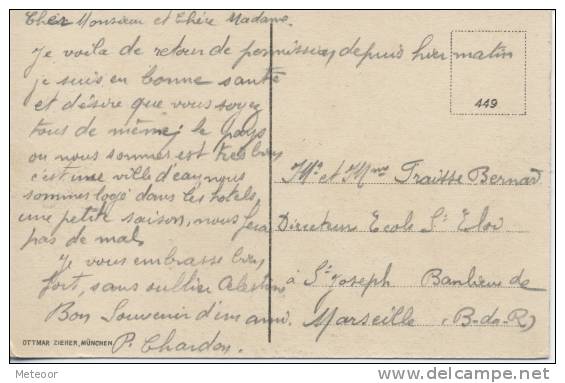 Cher Monsieur et Chère Madame.
Je voila de retour de permission, depuis hier matin
je suis en bonne santé
et désire que vous soyez
tous de même; le pays
ou nous sommes est très bien
c'est une ville d'eau, nous
sommes logé dans les hotels,
une petite saison, nous fera
pas de mal.
Je vous embrasse bien
fort, sans oublier Celestin
Bon Souvenir d'un ami.
P. Chardon.
OTTMAR ZIEHER, MÜNCHEN
449
Mr et Mme Fraisse Bernard
Directeur Ecole St Eloi
à St Joseph Banlieue de
Marseille (B-du-R)
Meteoor
delcampe.net